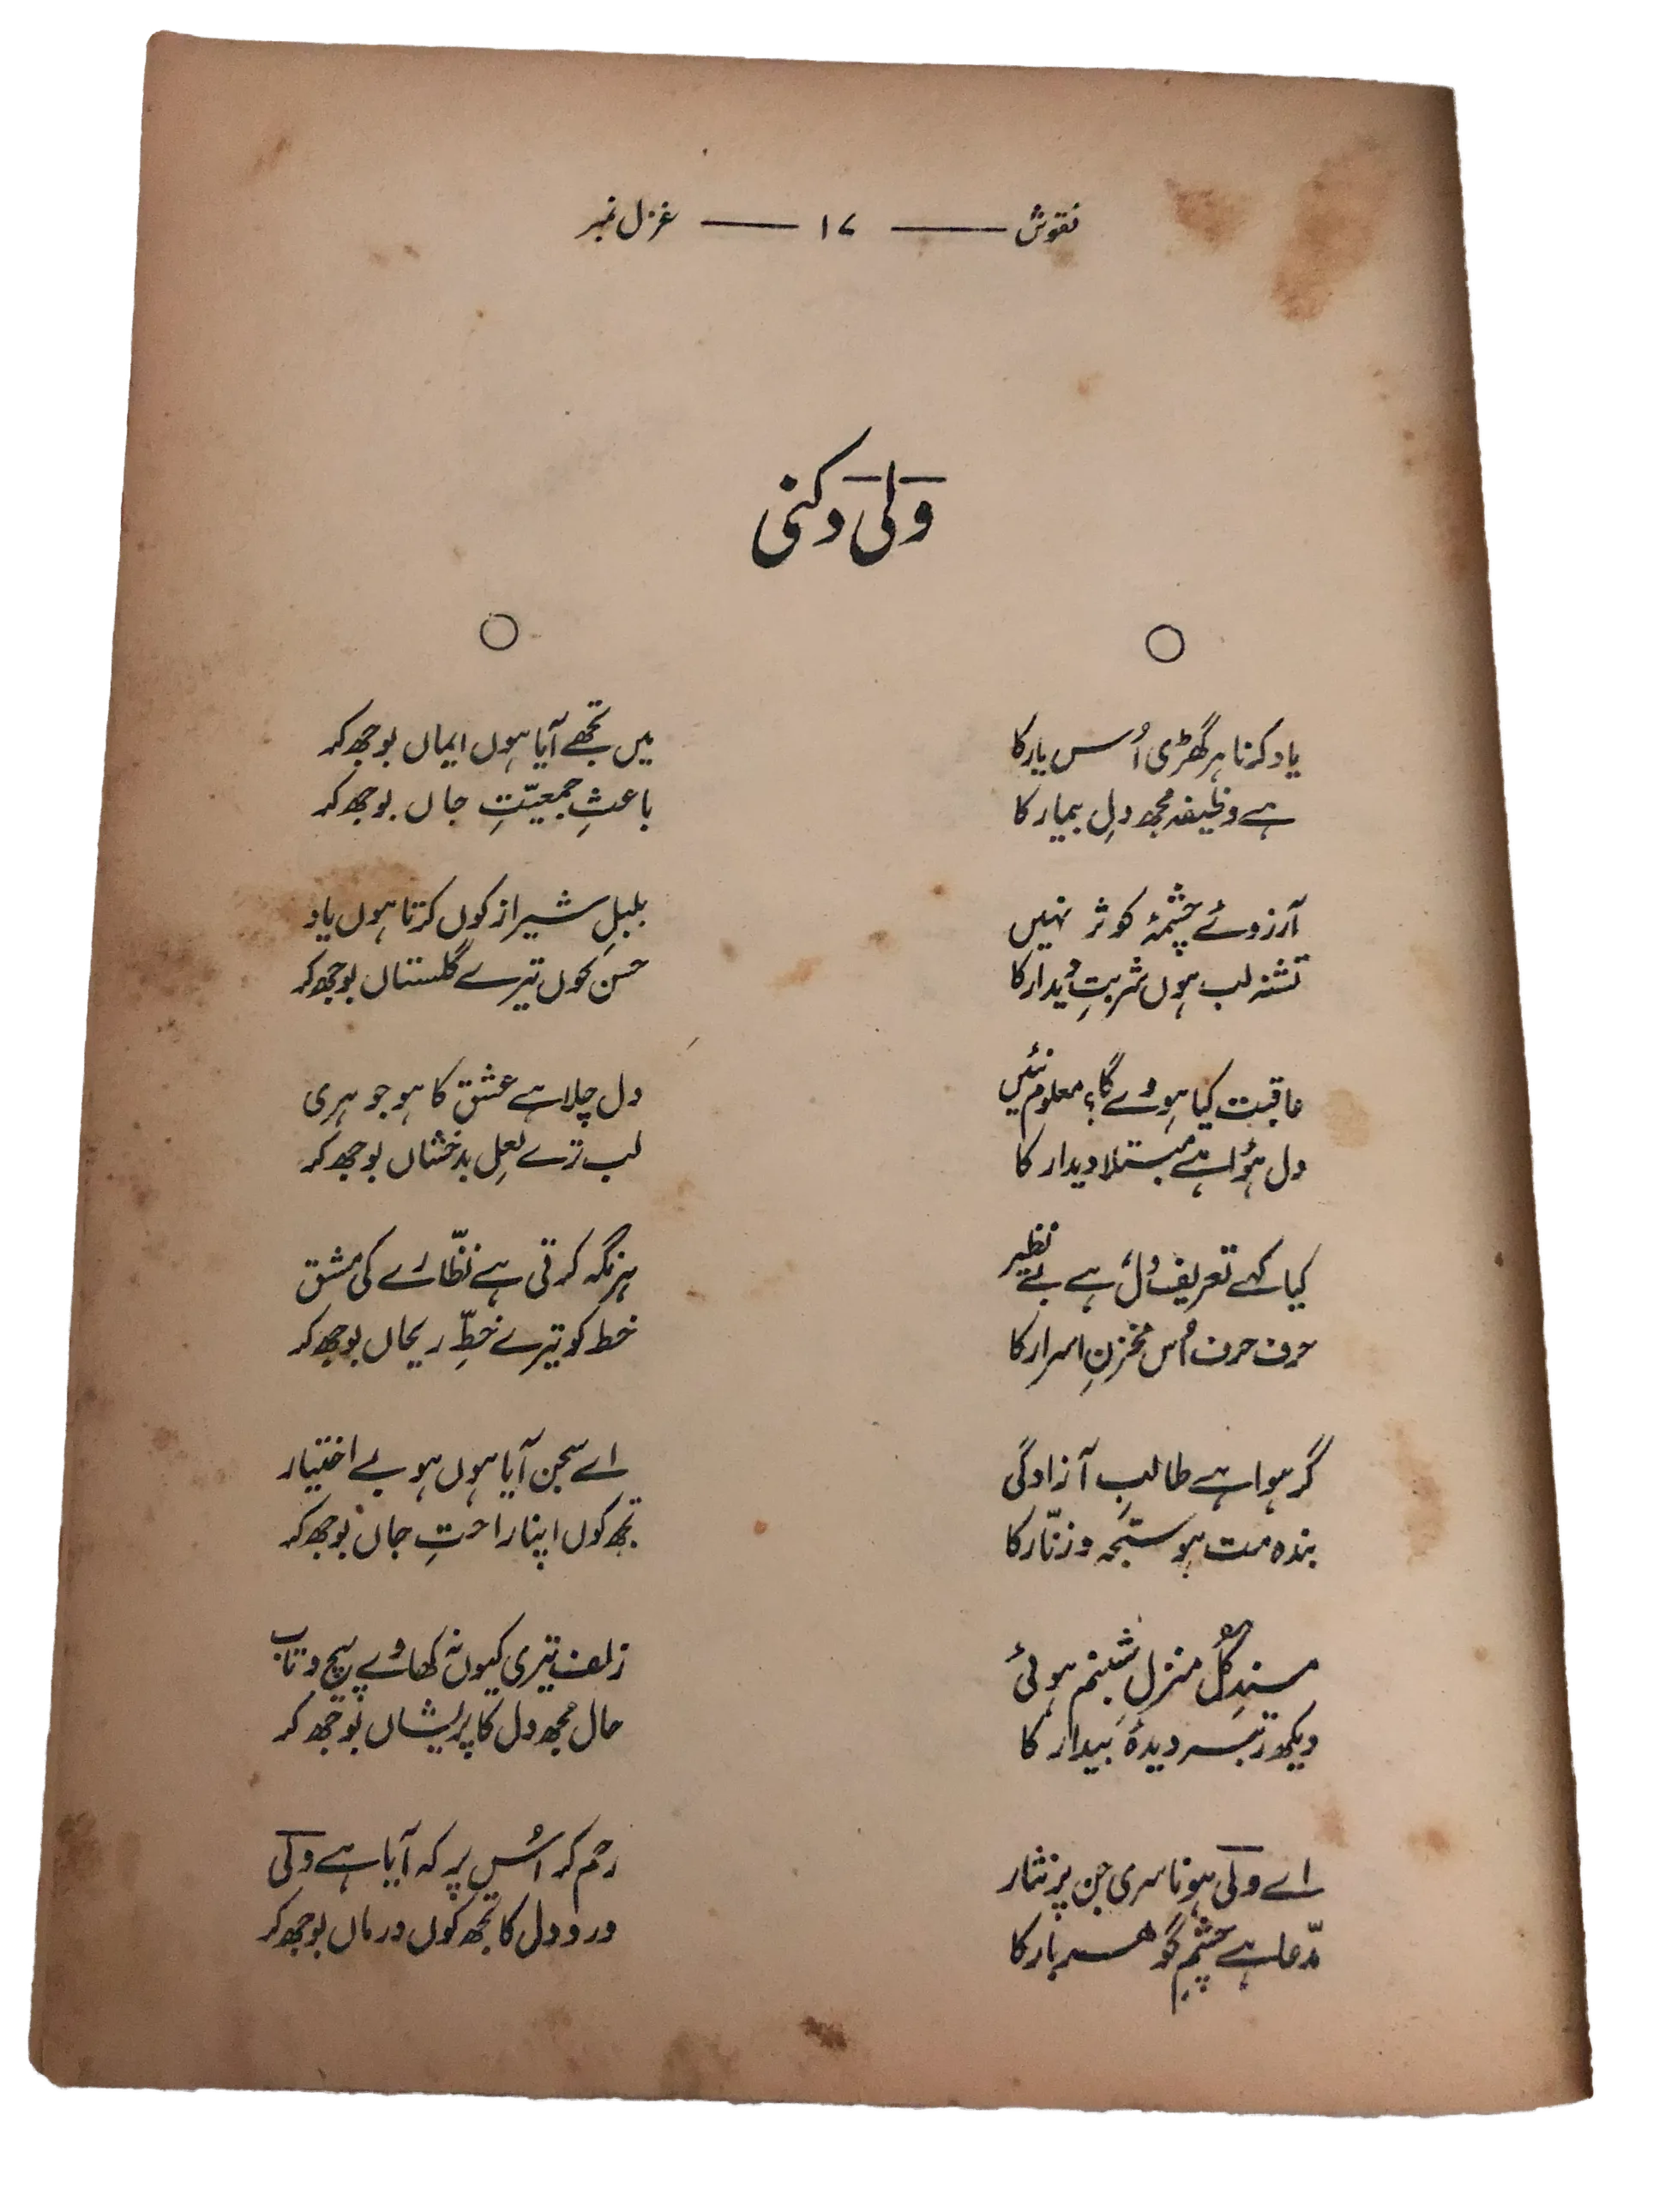 نقوش ــــــ ۱۷ ــــــ غزل نمبر
ولی دکنی
یاد کرنا ہر گھڑی اُس یار کا
ہے وظیفہ مجھ دلِ بیمار کا
آرزوئے چشمۂ کوثر نہیں
تشنہ لب ہوں شربتِ دیدار کا
عاقبت کیا ہووے گا؟ معلوم نئیں
دل ہُوا ہے مبتلا دیدار کا
کیا کہے تعریف دل ہے بے نظیر
حرف حرف اُس مخزنِ اسرار کا
گر ہوا ہے طالبِ آزادگی
بندہ مت ہو سبحہ و زنّار کا
مسندِ گُل منزلِ شبنم ہوئی
دیکھ رتبہ دیدۂ بیدار کا
اے ولی ہونا سری جن پر نثار
مدّعا ہے چشمِ گوہر بار کا
میں تجھے آیا ہوں ایماں بوجھ کر
باعثِ جمعیّتِ جاں بوجھ کر
بلبلِ شیراز کوں کرتا ہوں یاد
حسن کوں تیرے گلستاں بوجھ کر
دل چلا ہے عشق کا ہو جوہری
لب ترے لعلِ بدخشاں بوجھ کر
ہر نگہ کرتی ہے نظّارے کی مشق
خط کو تیرے خطِّ ریحاں بوجھ کر
اے سجن آیا ہوں ہو بے اختیار
تجھ کوں اپنا راحتِ جاں بوجھ کر
زلف تیری کیوں نہ کھاوے پیچ و تاب
حال مجھ دل کا پریشاں بوجھ کر
رحم کر اُس پر کہ آیا ہے ولی
دردِ دل کا تجھ کوں درماں بوجھ کر